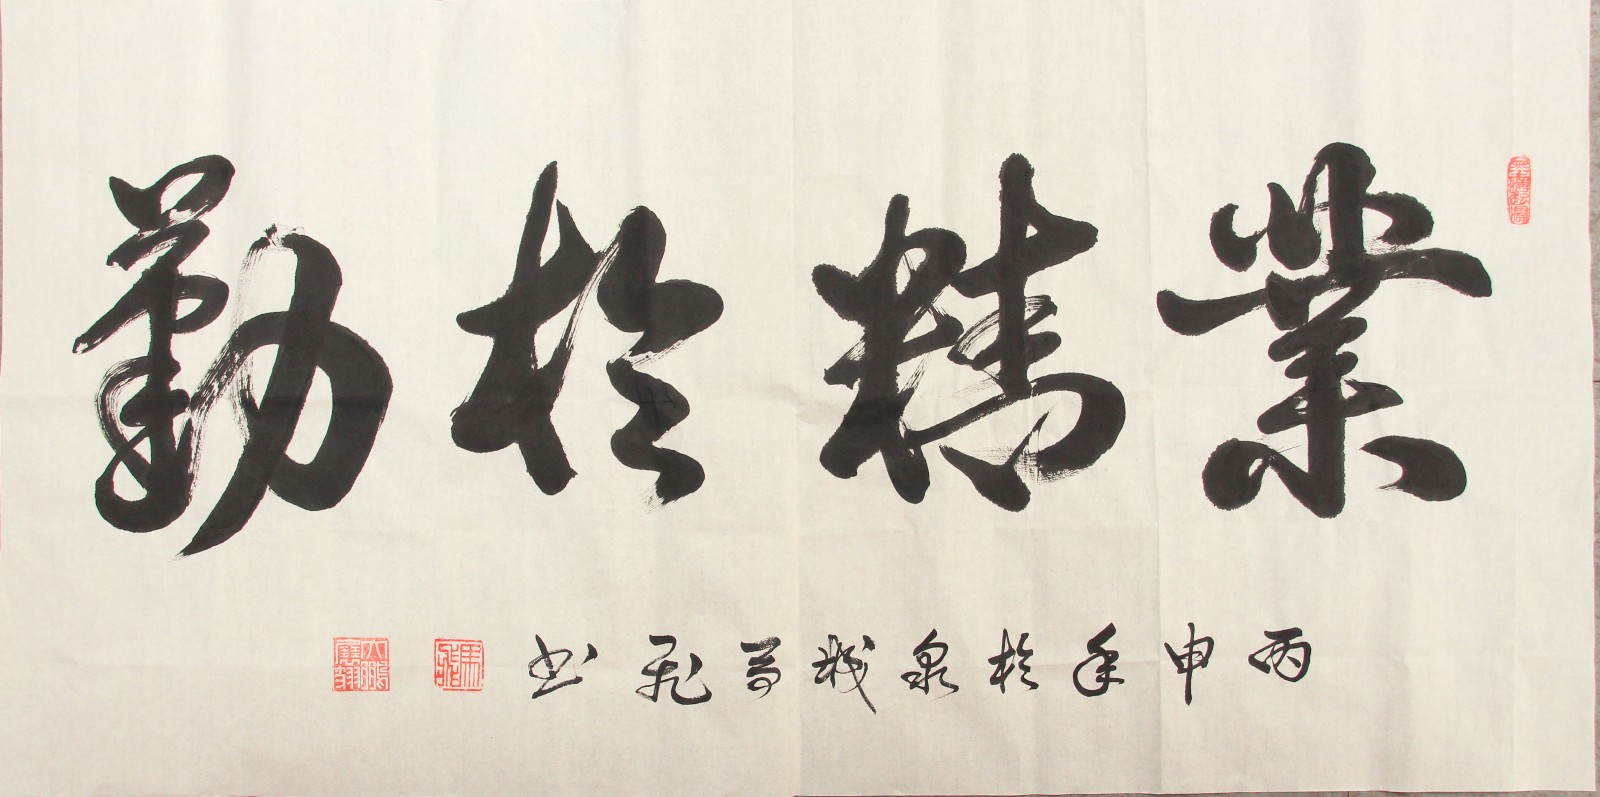 業精於勤
丙申年於泉城馬飛書